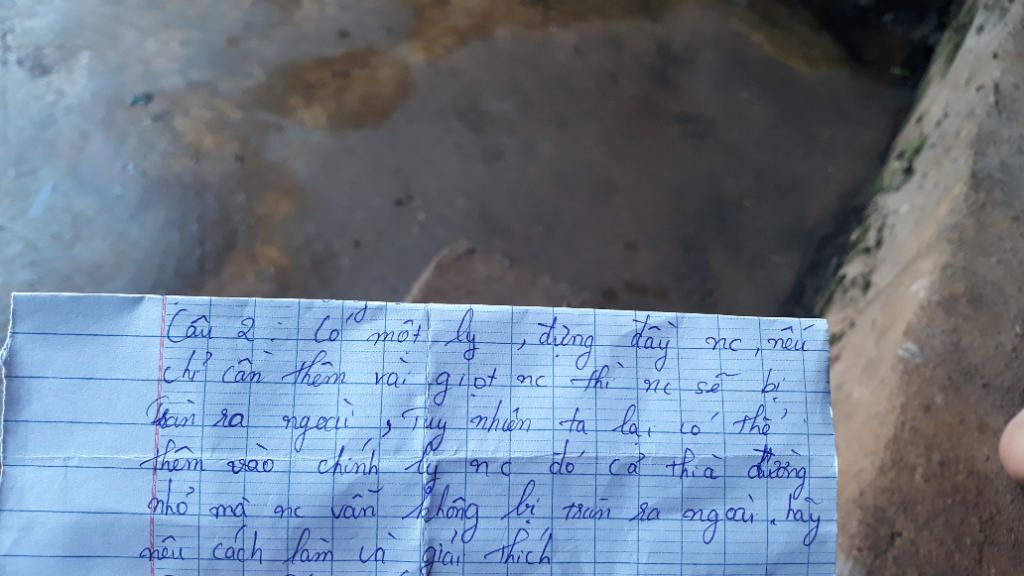 Câu 2: Có một ly, đựng đầy nc, nếu
chỉ cần thêm vài giọt nc thì nc sẽ bị
tràn ra ngoài, Tuy nhiên ta lại có thể
thêm vào chính ly nc đó cả thìa đường
nhỏ mà nc vẫn không bị tràn ra ngoài. hãy
nêu cách làm và giải thích